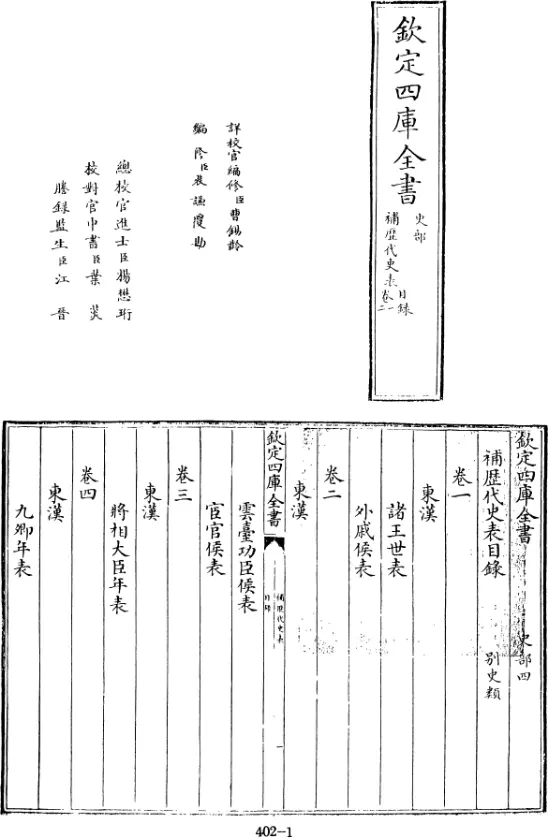 欽定四庫全書
史部
補歷代史表
目錄
卷一
二
詳校官編修臣曹錫齡
編修臣裴謙覆勘
總校官進士臣楊懋珩
校對官中書臣葉菼
謄錄監生臣江晉
欽定四庫全書
史部四
補歷代史表目錄
別史類
卷一
東漢
諸王世表
外戚侯表
卷二
東漢
欽定四庫全書
補歷代史表
目錄
一
雲臺功臣侯表
宦官侯表
卷三
東漢
將相大臣年表
卷四
東漢
九卿年表
402-1